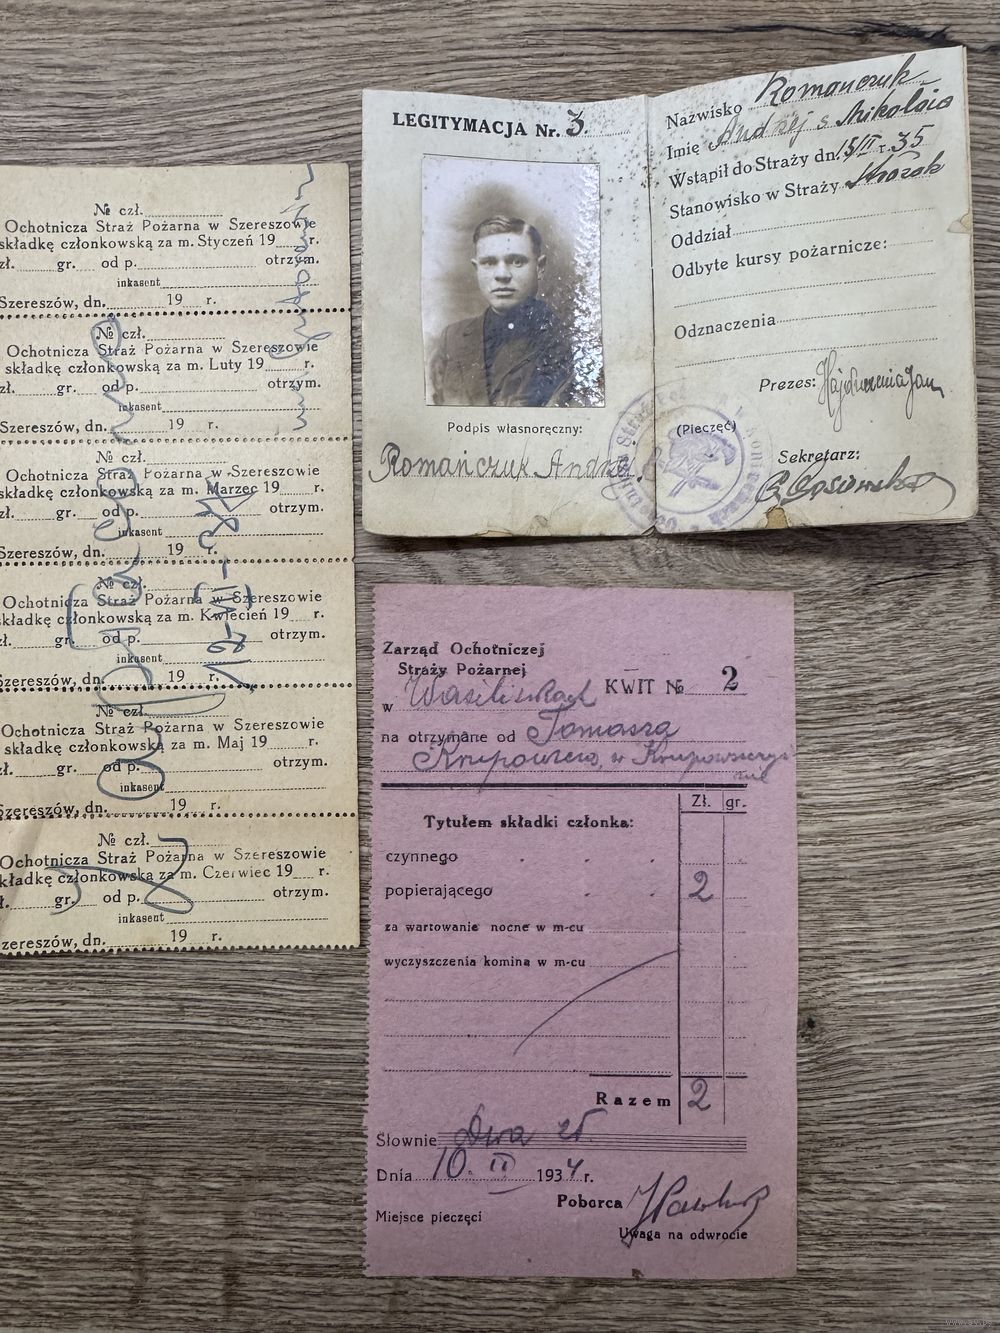 № czł.
Ochotnicza Straż Pożarna w Szereszowie
składkę członkowską za m. Styczeń 19 r.
zł. gr. od p. otrzym.
inkasent
Szereszów, dn. 19 r.
№ czł.
Ochotnicza Straż Pożarna w Szereszowie
składkę członkowską za m. Luty 19 r.
zł. gr. od p. otrzym.
inkasent
Szereszów, dn. 19 r.
№ czł.
Ochotnicza Straż Pożarna w Szereszowie
składkę członkowską za m. Marzec 19 r.
zł. gr. od p. otrzym.
inkasent
Szereszów, dn. 19 r.
№ czł.
Ochotnicza Straż Pożarna w Szereszowie
składkę członkowską za m. Kwiecień 19 r.
zł. gr. od p. otrzym.
inkasent
Szereszów, dn. 19 r.
№ czł.
Ochotnicza Straż Pożarna w Szereszowie
składkę członkowską za m. Maj 19 r.
zł. gr. od p. otrzym.
inkasent
Szereszów, dn. 19 r.
№ czł.
Ochotnicza Straż Pożarna w Szereszowie
składkę członkowską za m. Czerwiec 19 r.
zł. gr. od p. otrzym.
inkasent
Szereszów, dn. 19 r.
LEGITYMACJA Nr. 3.
Podpis własnoręczny:
Romańczuk Andrzej
Nazwisko Romańczuk
Imię Andrzej s. Mikołaja
Wstąpił do Straży dn. 15/II r. 35
Stanowisko w Straży
Oddział
Odbyte kursy pożarnicze:
Odznaczenia
Prezes:
(Pieczęć)
Sekretarz:
Zarząd Ochotniczej
Straży Pożarnej
w Wasiliszkach KWIT № 2
na otrzymane od Tomasza
Krupowicza, w
Zł. gr.
Tytułem składki członka:
czynnego
popierającego 2
za wartowanie nocne w m-cu
wyczyszczenia komina w m-cu
Razem 2
Słownie Dwa zł.
Dnia 10. II 1934 r.
Poborca
Miejsce pieczęci
Uwaga na odwrocie